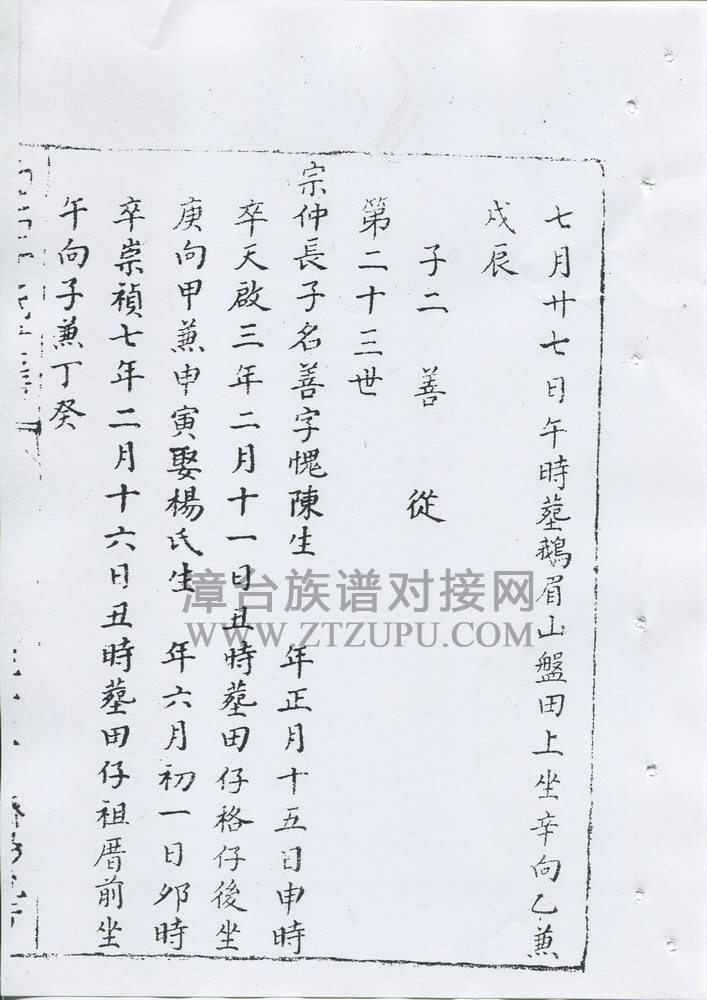 七月廿七日午時墓鵝眉山盤田上坐辛向乙兼
戌辰
子二 善 從
第二十三世
宗仲長子名善字愧陳生 年正月十五日申時
卒天啟三年二月十一日丑時墓田仔格仔後坐
庚向甲兼申寅娶楊氏生 年六月初一日夘時
卒崇禎七年二月十六日丑時墓田仔祖厝前坐
午向子兼丁癸
漳台族谱对接网
WWW.ZTZUPU.COM